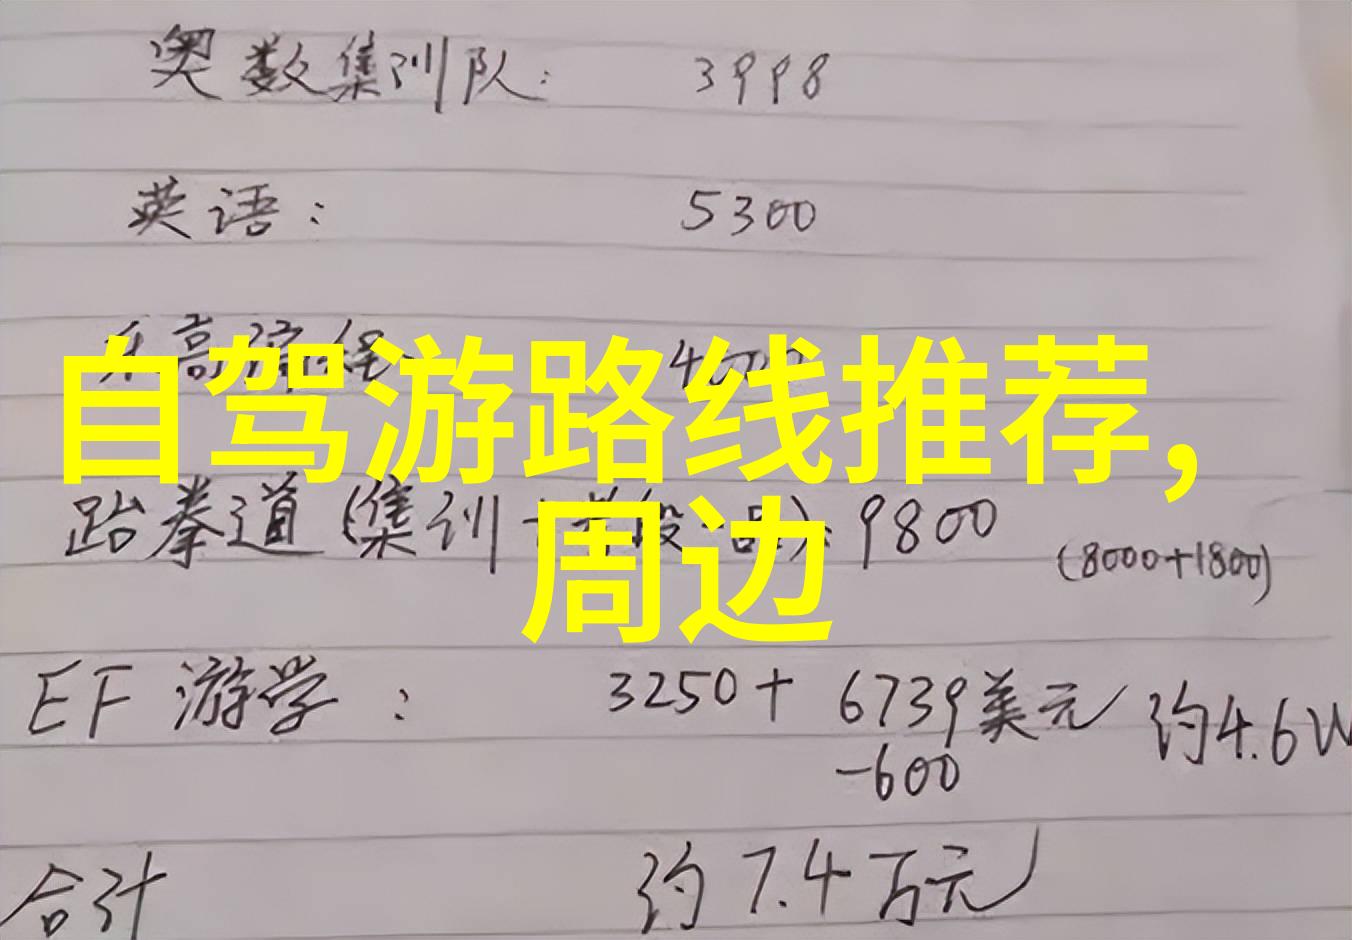 奥数集训队: 3998
英语: 5300
乐高编程 4000
自驾游路线推荐,
跆拳道(集训+ 段一品): 9800 (8000+1800)
周边
EF 游学: 3250+ 6739美元 约4.6W
-600
合计 约7.4万元